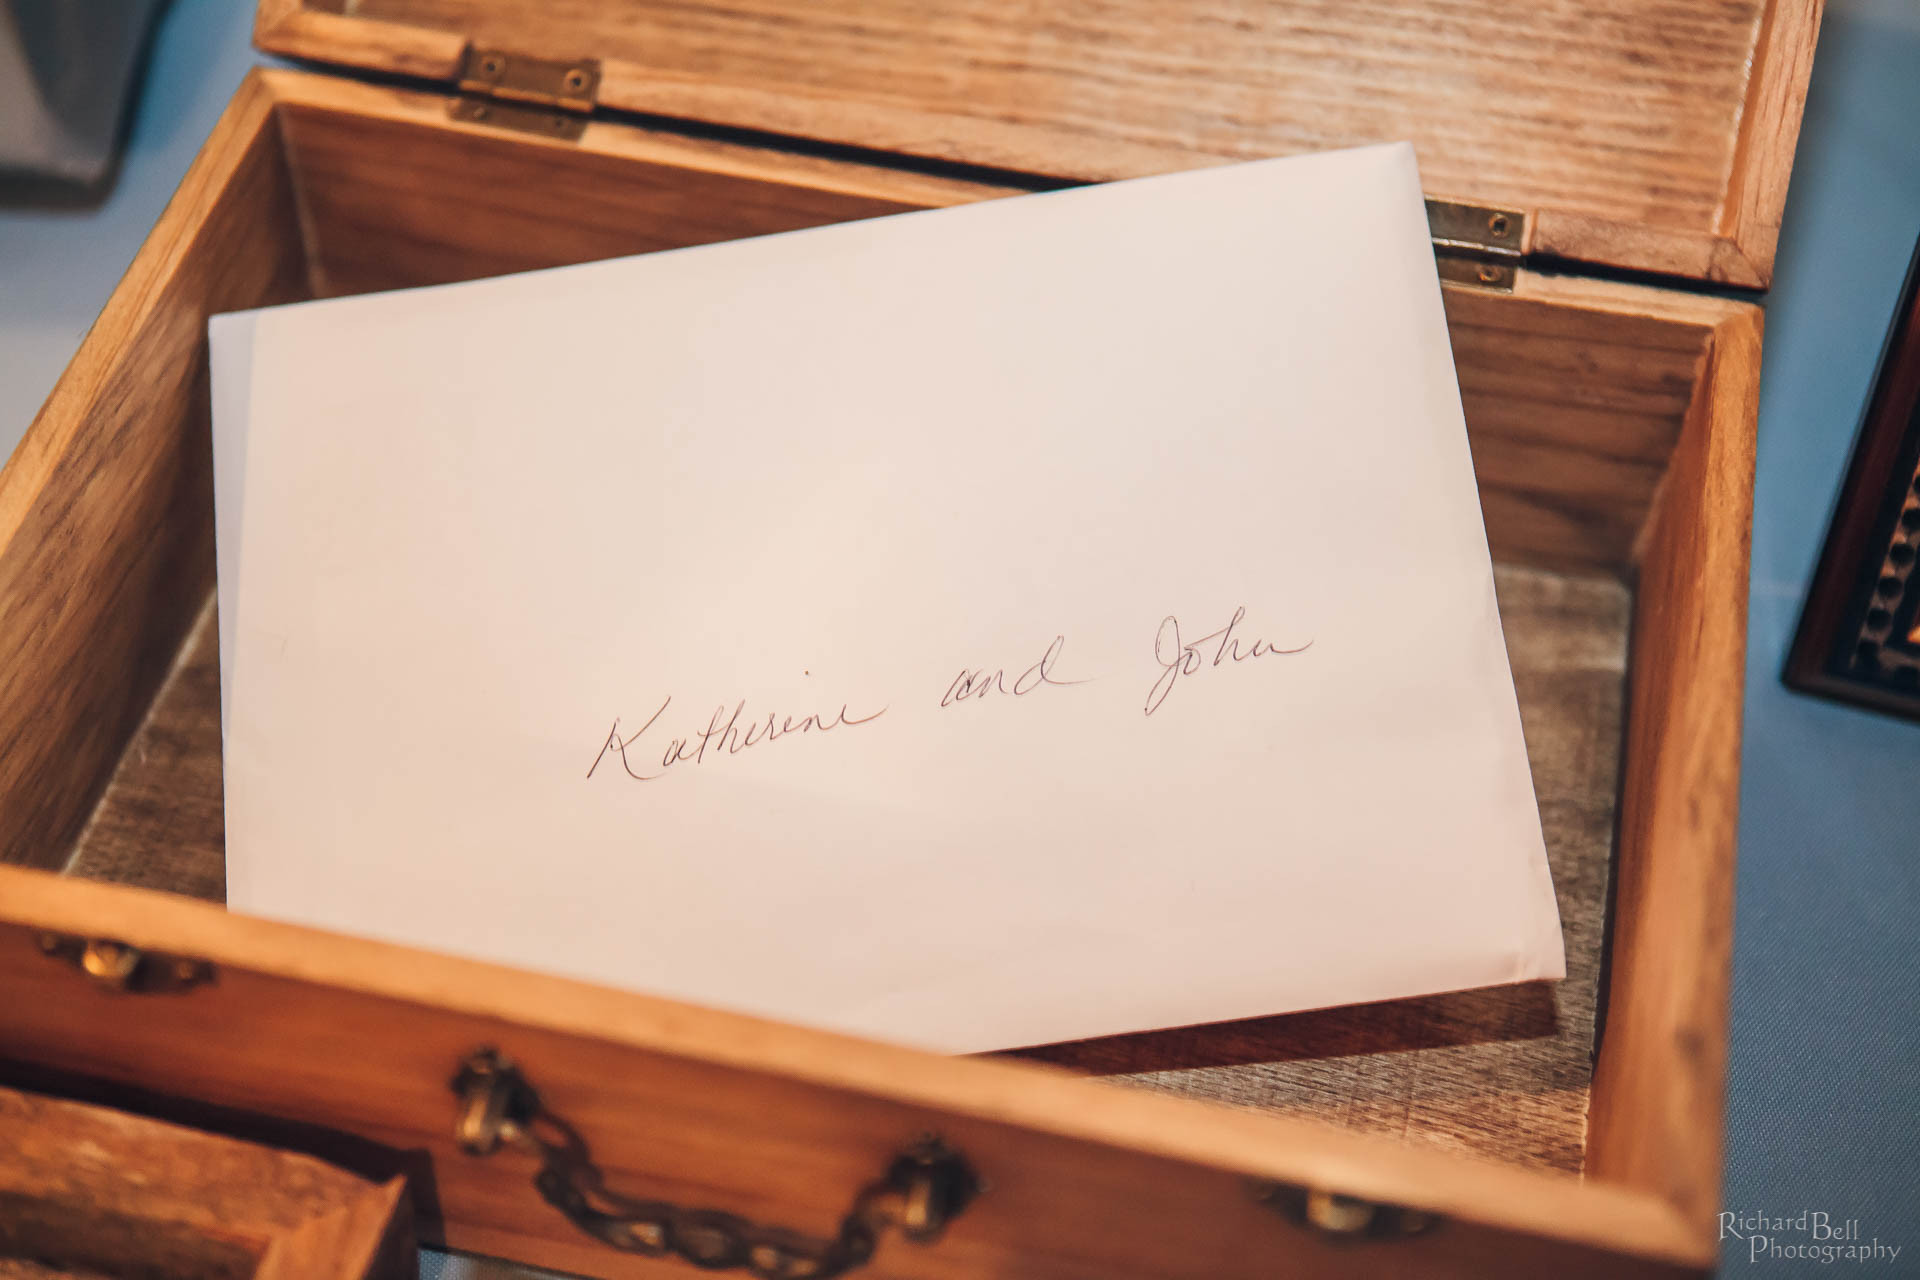 Katherine and John
RichardBell
Photography